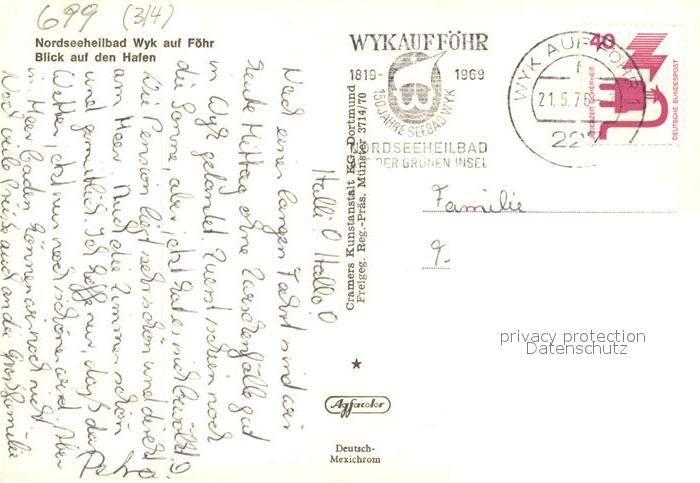 699 (3/4)
Nordseeheilbad Wyk auf Föhr
Blick auf den Hafen
WYK AUF FÖHR
1819- 1969
150 JAHRE SEEBAD WYK
NORDSEEHEILBAD
DER GRÜNEN INSEL
WYK AUF FÖHR 1
f
21.5.76
227
40
JEDERZEIT SICHERHEIT
DEUTSCHE BUNDESPOST
Cramers Kunstanstalt KG. Dortmund
Freigeg. Reg.-Präs. Münster 3714/70
Familie
Halli! Hallo!
Nach einer langen Fahrt sind wir
heute Mittag ohne Zwischenfälle gut
in Wyk gelandet. Zuerst schien noch
die Sonne, aber jetzt hat es sich bewölkt.
Die Pension liegt sehr schön und direkt
am Meer. Auch die Zimmer schön
und gemütlich. Ich hoffe nur, daß das
Wetter jetzt nur noch schöne wird. Aber
im Meer baden können wir noch nicht
Noch viele Grüße auch an die Großfamilie
Petra
Agfacolor
Deutsch-
Mexichrom
privacy protection
Datenschutz